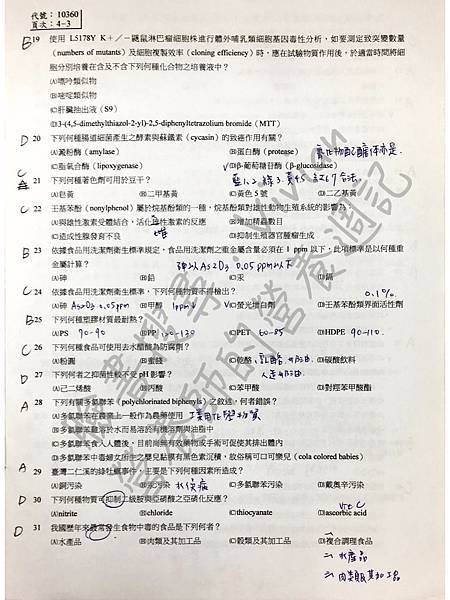 代號：10360
頁次：4－3
B 19 使用 L5178Y K＋／－鼷鼠淋巴瘤細胞株進行體外哺乳類細胞基因毒性分析，如要測定致突變數量
（numbers of mutants）及細胞複製效率（cloning efficiency）時，應在試驗物質作用後，於適當時間將細
胞分別培養在含及不含下列何種化合物之培養液中？
(A)嘌呤類似物
(B)嘧啶類似物
(C)肝臟抽出液（S9）
(D)3-(4,5-dimethylthiazol-2-yl)-2,5-diphenyltetrazolium bromide（MTT）
D 20 下列何種腸道細菌產生之酵素與蘇鐵素（cycasin）的致癌作用有關？
(A)澱粉酶（amylase） (B)蛋白酶（protease）
(C)脂氧合酶（lipoxygenase） (D)β-葡萄糖苷酶（β-glucosidase）
21 下列何種著色劑可用於豆干？
(A)皂黃 (B)二甲基黃 (C)黃色 5 號 (D)二乙基黃
C 22 壬基苯酚（nonylphenol）屬於烷基酚類的一種，烷基酚類對雄性動物生殖系統的影響為：
(A)與雄性激素受體結合，活化雄性激素的反應 (B)增加精蟲數目
(C)造成性腺發育不良 (D)抑制生殖器官腫瘤生成
A 23 依據食品用洗滌劑衛生標準規定，食品用洗滌劑之重金屬含量必須在 1 ppm 以下，此項標準是以何種重
金屬計算？ 砷以As2O3 0.05 ppm以下
(A)砷 (B)鉛 (C)汞 (D)鎘
C 24 依據食品用洗滌劑衛生標準，下列何種物質不得檢出？ 0.1%
(A)砷 As2O3 0.05ppm (B)甲醇 1ppm (C)螢光增白劑 (D)壬基苯酚類界面活性劑
B 25 下列何種塑膠材質最耐熱？
(A)PS 70-90 (B)PP 100-130 (C)PET 60-85 (D)HDPE 90-110.
C 26 下列何種食品可使用去水醋酸為防腐劑？
(A)粉圓 (B)蜜餞 (C)乾酪 乳酪 (D)碳酸飲料
D 27 下列何者之抑菌性較不受 pH 影響？
(A)己二烯酸 (B)丙酸 (C)苯甲酸 (D)對羥苯甲酸酯
A 28 下列有關多氯聯苯（polychlorinated biphenyls）之敘述，何者錯誤？
(A)多氯聯苯在農業上一般作為農藥使用 工業用化學物質
(B)多氯聯苯難溶於水而易溶於有機溶劑與油脂中
(C)多氯聯苯食入人體後，目前尚無有效藥物或手術可促使其排出體內
(D)多氯聯苯中毒婦女所生之嬰兒黏膜有黑色素沉積，故俗稱可口可樂兒（cola colored babies）
A 29 臺灣二仁溪的綠牡蠣事件，主要是下列何種因素所造成？
(A)銅污染 (B)汞污染 水俁症 (C)多氯聯苯污染 (D)戴奧辛污染
D 30 下列何種物質可抑制二級胺與亞硝酸之亞硝化反應？ Vit C
(A)nitrite (B)chloride (C)thiocyanate (D)ascorbic acid
D 31 我國歷年來最常發生食物中毒的食品是下列何者？
(A)水產品 (B)肉類及其加工品 (C)穀類及其加工品 (D)複合調理食品
水產品
肉類及其加工品